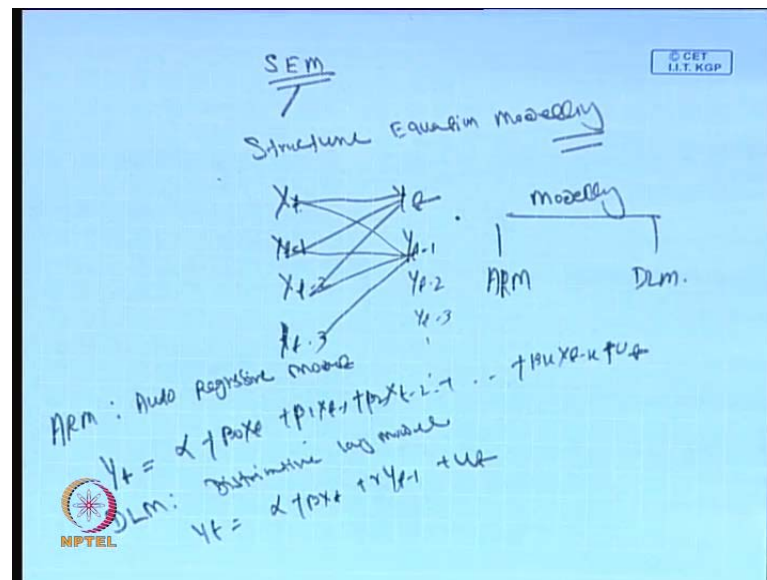 SEM
© CET
I.I.T. KGP
Structure Equation Modelling
Xt Yt
Xt-1 Yt-1
Xt-2 Yt-2
Xt-3 Yt-3
Modelling
ARM DLM.
ARM: Auto Regressive model
Yt = α + β0Xt + β1Xt-1 + β2Xt-2 + .. + βkXt-k + Ut
DLM: Distributive lag model
Yt = α + βXt + γYt-1 + ut
NPTEL